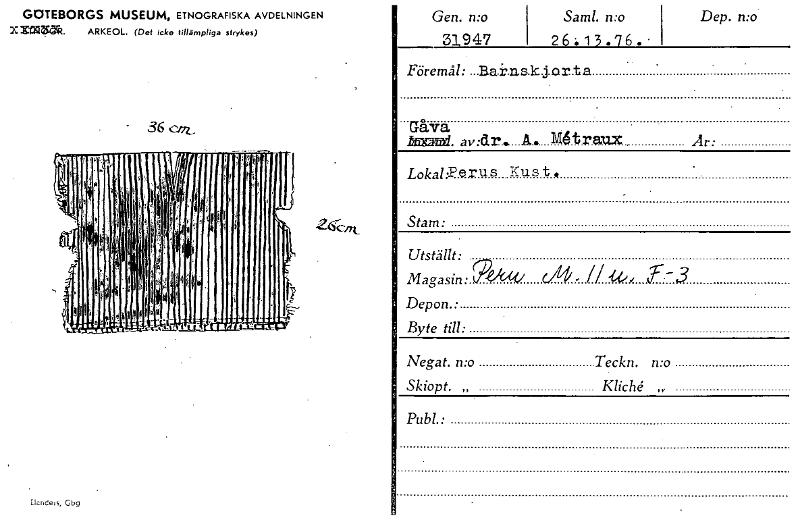 GÖTEBORGS MUSEUM, ETNOGRAFISKA AVDELNINGEN
ARKEOL. (Det icke tillämpliga strykes)
36 cm.
26 cm
Elanders, Gbg
Gen. n:o Saml. n:o Dep. n:o
31947 26.13.76.
Föremål: Barnskjorta
Gåva
av: dr. A. Métraux År:
Lokal: Perus Kust.
Stam:
Utställt:
Magasin: Peru M. 11 u. F-3
Depon.:
Byte till:
Negat. n:o Teckn. n:o
Skiopt. „ Kliché „
Publ.: